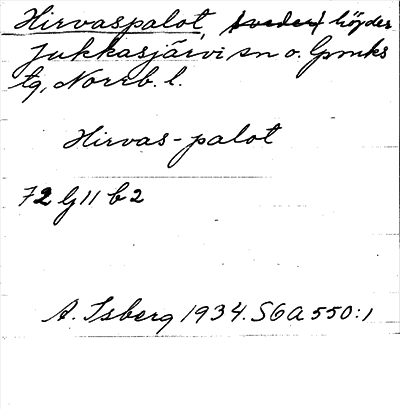 Hirvaspalot, höjder
Jukkasjärvi sn o. Gpmks
tg, Norrb. l.
Hirvas-palot
72 G 11 b 2
A. Isberg 1934. SGA 550:1